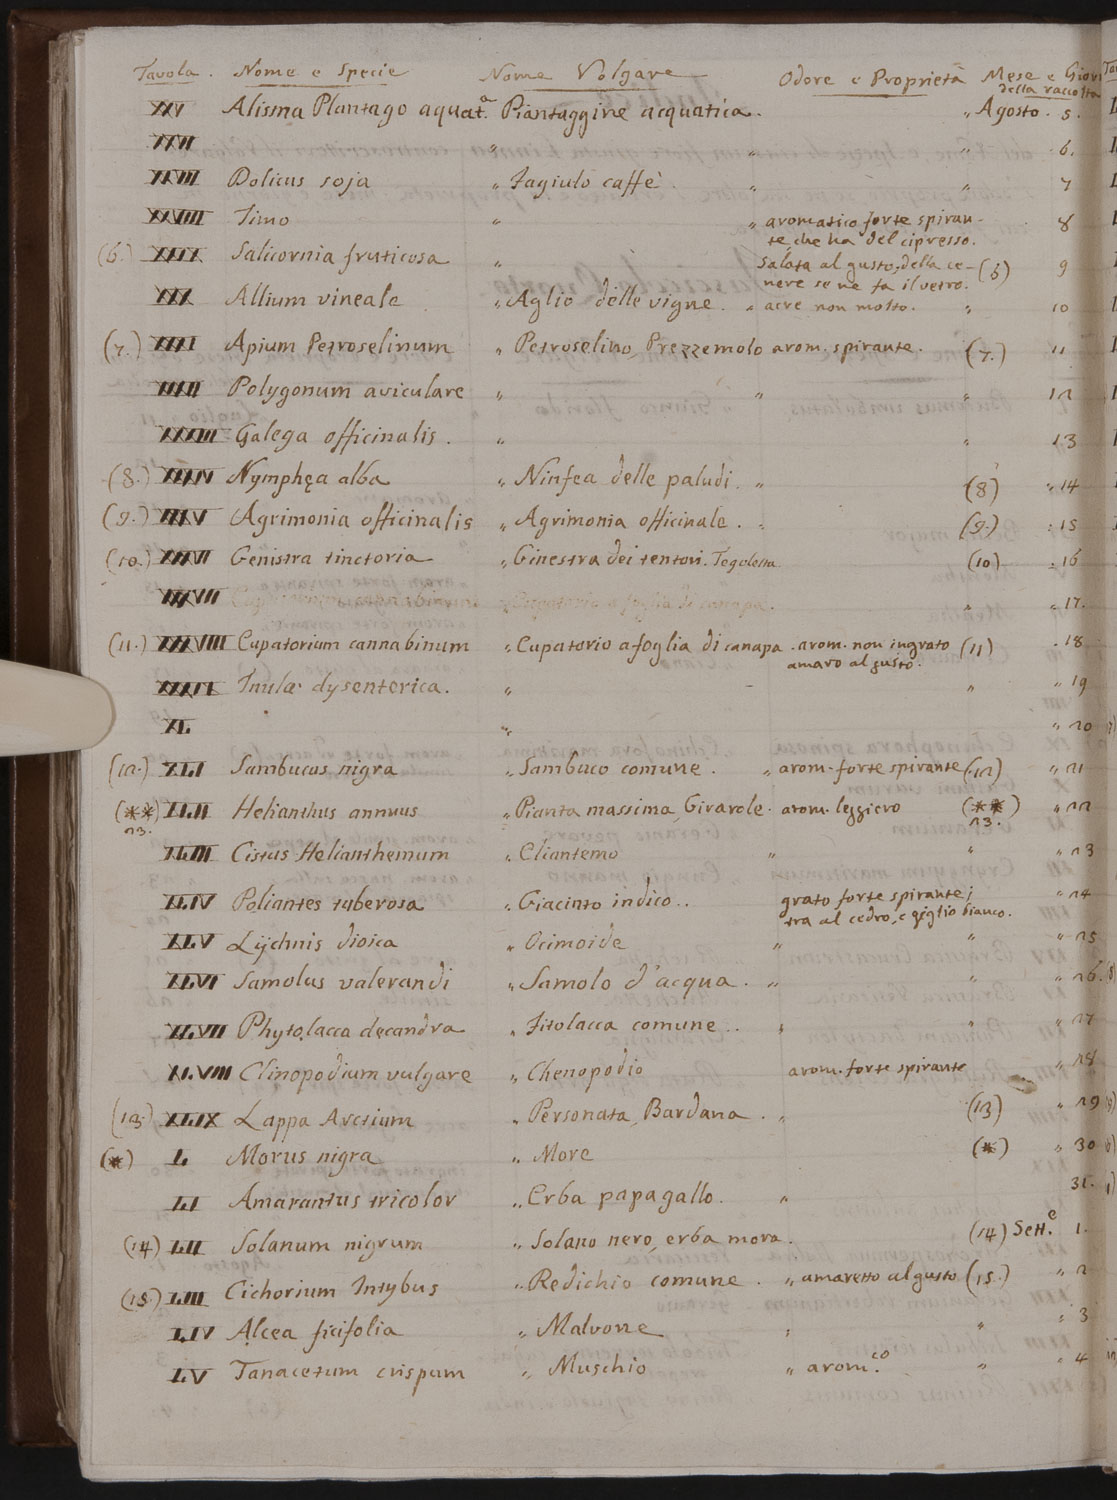 Tavola. Nome e Specie Nome Volgare Odore e Proprietà Mese e Giorn
della raccolta
XXV Alisma Plantago aquat.a Piantaggine acquatica. „ Agosto. 5.
XXVI „ „ „ 6.
XXVII Dolicus soja „ Fagiulo caffè. „ „ 7
XXVIII Timo „ „ aromatico forte spiran-
te, che ha del cipresso. 8
(6.) XXIX Salicornia fruticosa „ Salata al gusto, della ce-
nere se ne fa il vetro. (6) 9
XXX Allium vineale „ Aglio delle vigne. „ acre non molto. „ 10
(7.) XXXI Apium Petroselinum „ Petroselino, Prezzemolo arom. spirante. (7.) 11
XXXII Polygonum aviculare „ „ „ 12
XXXIII Galega officinalis. „ „ 13
(8.) XXXIV Nymphęa alba „ Ninfea delle paludi. „ (8) „ 14
(9.) XXXV Agrimonia officinalis „ Agrimonia officinale. „ (9.) „ 15
(10.) XXXVI Genistra tinctoria „ Ginestra dei tentori. (10) „ 16
XXXVII „ Cupatorio a foglia di canapa. „ „ 17.
(11.) XXXVIII Eupatorium cannabinum „ Eupatorio a foglia di canapa. arom. non ingrato
amaro al gusto. (11) „ 18
XXXIX Inula dysenterica. „ „ „ 19
XL „ „ 20
(12.) XLI Sambucus nigra „ Sambuco comune. „ arom. forte spirante (12) „ 21
(**) XLII Helianthus annuus „ Pianta massima, Girasole. arom. leggiero (**) „ 22
13. 13.
XLIII Cistus Helianthemum „ Eliantemo „ „ „ 23
XLIV Poliantes tuberosa „ Giacinto indico.. grato forte spirante;
tra al cedro, e giglio bianco. „ 24
XLV Lÿchnis dioica „ Ocimoide „ „ „ 25
XLVI Samolus valerandi „ Samolo d'acqua. „ „ „ 26.
XLVII Phytolacca decandra „ Fitolacca comune.. „ „ „ 27
XLVIII Clinopodium vulgare „ Chenopodio arom. forte spirante „ 28
(13.) XLIX Lappa Arctium „ Personata, Bardana. „ (13) „ 29
(*) L Morus nigra „ More (*) „ 30
LI Amarantus tricolor „ Erba papagallo. „ 31.
(14) LII Solanum nigrum „ Solano nero, erba mora. (14) Sett.e 1.
(15.) LIII Cichorium Intybus „ Redichio comune. „ amaretto al gusto (15.) „ 2
LIV Alcea ficifolia „ Malvone „ „ „ 3
LV Tanacetum crispum „ Muschio „ arom.co „ „ 4